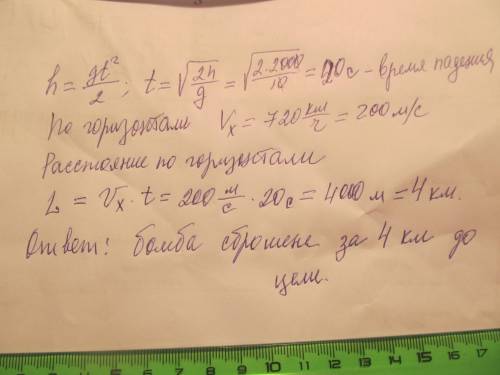 h = gt²/2; t = √(2h/g) = √(2·2000/10) = 20 с – время падения
По горизонтали Vₓ = 720 км/ч = 200 м/с
Расстояние по горизонтали
L = Vₓ · t = 200 м/с · 20с = 4000 м = 4 км.
Ответ: бомба сброшене за 4 км до
цели.
1 2 3 4 5 6 7 8 9 10 11 12 13 14 15 16 17